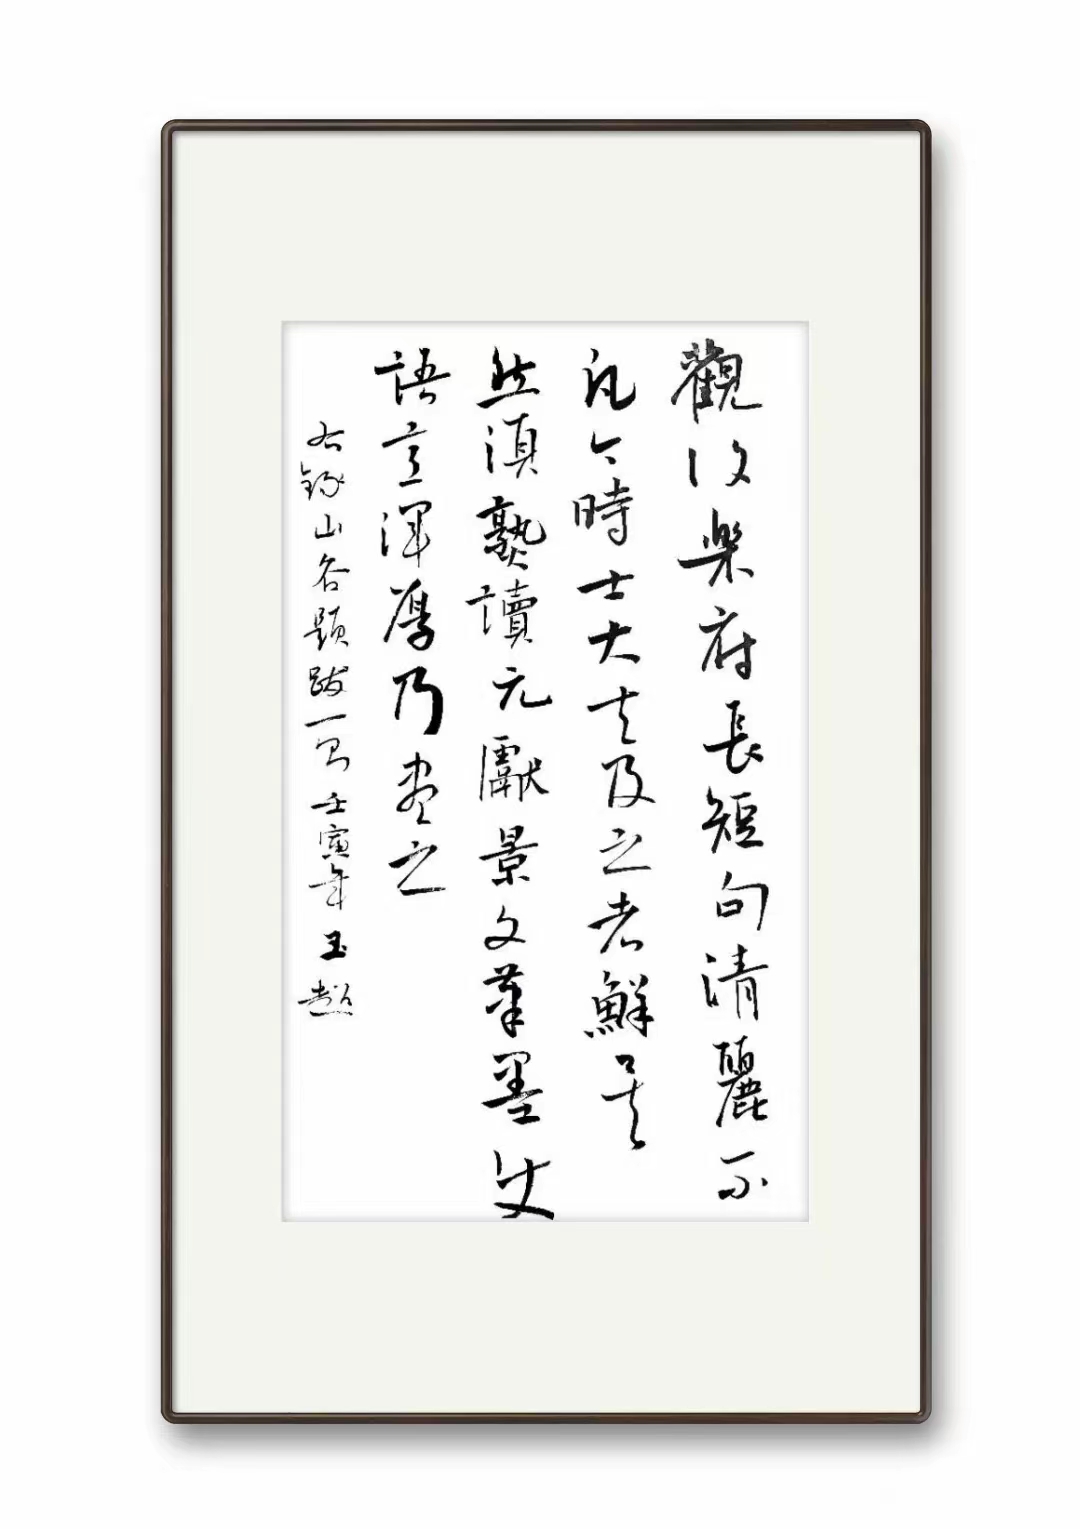 觀復樂府長短句清麗不
凡今時士大夫及之者鮮矣
然須熟讀元獻景文筆墨使
語意渾厚乃盡之
右錄山谷題跋一則壬寅年玉超